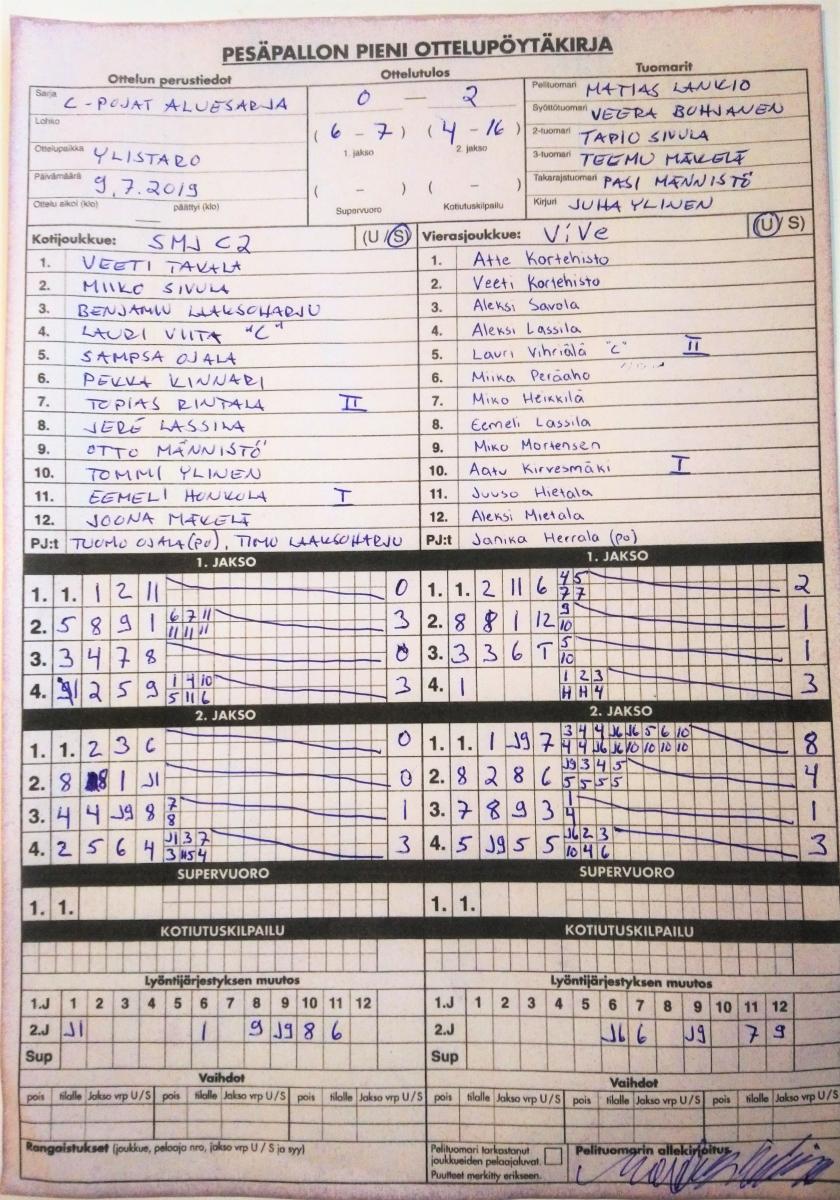 PESÄPALLON PIENI OTTELUPÖYTÄKIRJA
Ottelun perustiedot Ottelutulos Tuomarit
Sarja C-POJAT ALUESARJA
Lohko
Ottelupaikka YLISTARO
Päivämäärä 9.7.2019
Ottelu alkoi (klo) päättyi (klo)
0 — 2
(6 - 7) (4 - 16)
1. jakso 2. jakso
( - ) ( - )
Supervuoro Kotiutuskilpailu
Pelituomari MATIAS LANKIO
Syöttötuomari VEERA BUHJANEN
2-tuomari TAPIO SIVULA
3-tuomari TEEMU MÄKELÄ
Takarajatuomari PASI MÄNNISTÖ
Kirjuri JUHA YLINEN
Kotijoukkue: SMJ C2 (U/S)
1. VEETI TAKALA
2. MIIKO SIVULA
3. BENJAMIN LAAKSOHARJU
4. LAURI VIITA "C"
5. SAMPSA OJALA
6. PEKKA KINNARI
7. TOPIAS RINTALA II
8. JERE LASSILA
9. OTTO MÄNNISTÖ
10. TOMMI YLINEN
11. EEMELI HONKOLA I
12. JOONA MÄKELÄ
PJ:t TUOMO OJALA(PJ), TIMO LAAKSOHARJU
Vierasjoukkue: ViVe (U/S)
1. Atte Kortehisto
2. Veeti Kortehisto
3. Aleksi Savola
4. Aleksi Lassila
5. Lauri Vihriälä "C" II
6. Miika Peräaho
7. Miko Heikkilä
8. Eemeli Lassila
9. Miko Mortensen
10. Aatu Kirvesmäki I
11. Juuso Hietala
12. Aleksi Mietala
PJ:t Janika Herrala (pj)
1. JAKSO
1. 1. 1 2 11 0
2. 5 8 9 1 6 7 11 3
11 11 11
3. 3 4 7 8 0
4. 2 5 9 1 4 10 3
5 11 6
2. JAKSO
1. 1. 2 3 6 0
2. 8 1 J1 0
3. 4 4 J9 8 7 1
8
4. 2 5 6 4 J1 3 7 3
SUPERVUORO
1. 1.
KOTIUTUSKILPAILU
1. JAKSO
1. 1. 2 11 6 4 5 2
7 7
2. 8 8 1 12 9 1
10
3. 3 3 6 T 5 1
10
4. 1 1 2 3 3
H H 4
2. JAKSO
1. 1. 1 J9 7 3 4 4 J6 J6 5 6 10 8
4 4 J6 J6 10 10 10 10
2. 8 2 8 6 J9 3 4 5 4
5 5 5 5
3. 7 8 9 3 1 1
4
4. 5 J9 5 5 J6 2 3 3
10 4 6
SUPERVUORO
1. 1.
KOTIUTUSKILPAILU
Lyöntijärjestyksen muutos
1.J 1 2 3 4 5 6 7 8 9 10 11 12
2.J J1 1 9 J9 8 6
Sup
Vaihdot
pois tilalle Jakso vrp U/S pois tilalle Jakso vrp U/S pois tilalle Jakso vrp U/S
Lyöntijärjestyksen muutos
1.J 1 2 3 4 5 6 7 8 9 10 11 12
2.J J6 6 J9 7 9
Sup
Vaihdot
pois tilalle Jakso vrp U/S pois tilalle Jakso vrp U/S pois tilalle Jakso vrp U/S
Rangaistukset (joukkue, pelaaja nro, jakso vrp U/S ja syy)
Pelituomari tarkastanut
joukkueiden pelaajaluvat.
Puutteet merkitty erikseen.
Pelituomarin allekirjoitus